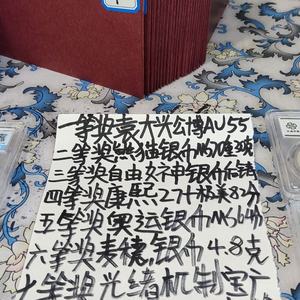 一等奖袁大头公博AU55
二等奖熊猫银币M70喷砂
三等奖自由女神银币后铸
四等奖康熙27十极美82分
五等奖奥运银币MS64分
六等奖麦穗,银币4.8克
七等奖光绪机制宝广